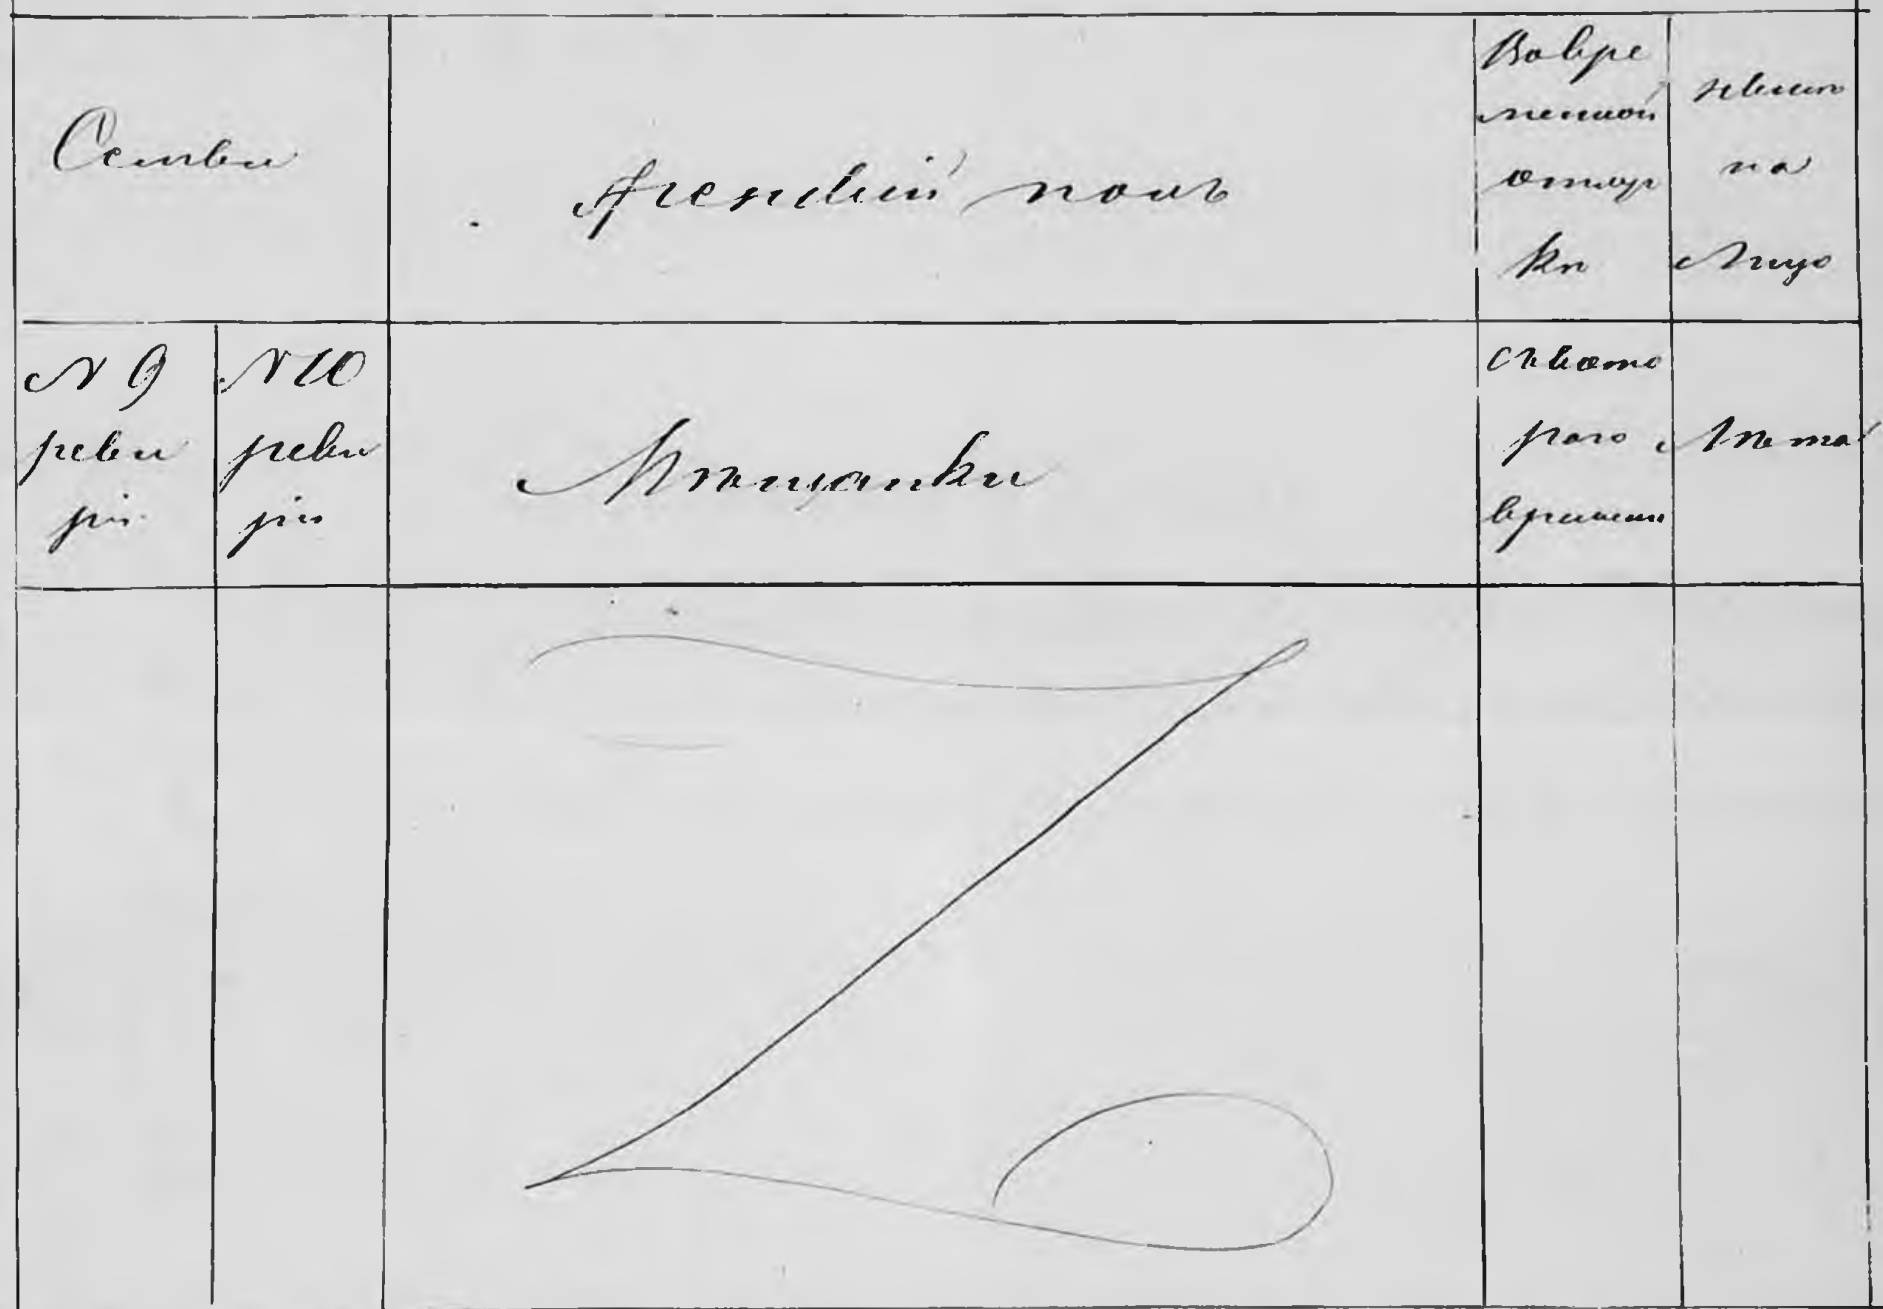 Семьи
Женскій полъ
Во вре
менной
отлуч
кѣ
налицо
№ 9
реви
зіи
№ 10
реви
зіи
Мѣщанки
Съ кото
раго
времени
Лѣта